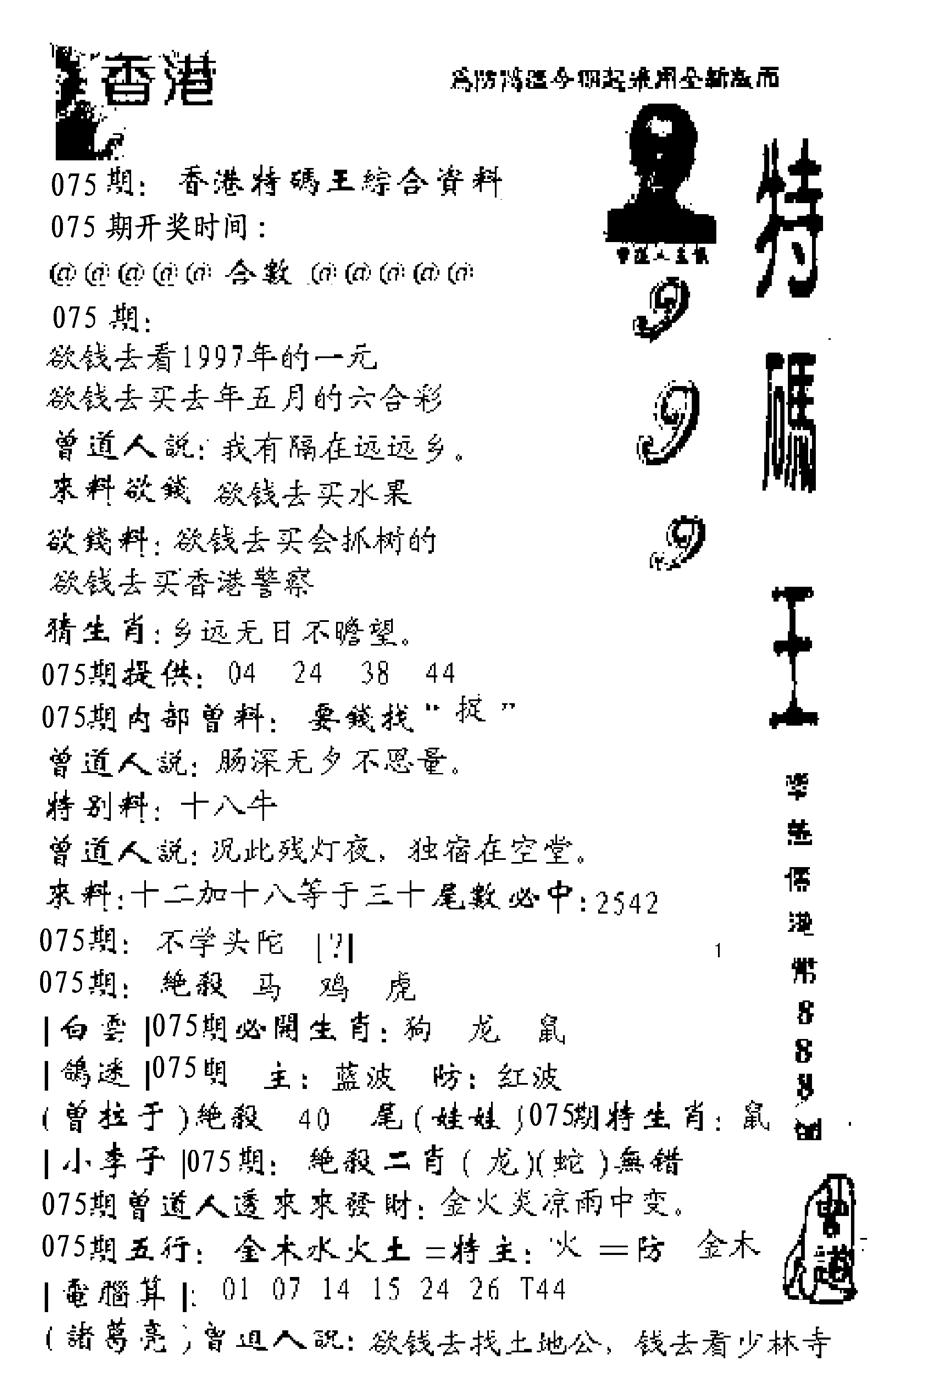 香港
為防濤澀今期起采用全新版面
075期：香港特碼王綜合資料
075期开奖时间：
@@@@@合數@@@@@
075期：
欲钱去看1997年的一元
欲钱去买去年五月的六合彩
曾道人説：我有隔在远远乡。
來料欲錢 欲钱去买水果
欲錢料：欲钱去买会抓树的
欲钱去买香港警察
猜生肖：乡远无日不瞻望。
075期提供：04 24 38 44
075期内部曾料：要錢找“捉”
曾道人説：肠深无夕不思量。
特别料：十八牛
曾道人説：况此残灯夜，独宿在空堂。
來料：十二加十八等于三十尾數必中：2542
075期：不学头陀 [?]
1
075期：絶殺 马 鸡 虎
|白雲|075期必開生肖：狗 龙 鼠
|鴿迷|075期 主：蓝波 防：红波
(曾拉于)絶殺 40 尾(娃娃)075期特生肖：鼠
|小李子|075期：絶殺二肖(龙)(蛇)無错
075期曾道人透來來發財：金火炎凉雨中变。
075期五行：金木水火土=特主：火=防 金木
|電腦算|：01 07 14 15 24 26 T44
(諸葛亮)曾道人説：欲钱去找土地公，钱去看少林寺
曾道人主俵
9
9
9
特碼王
港幣888
曾道